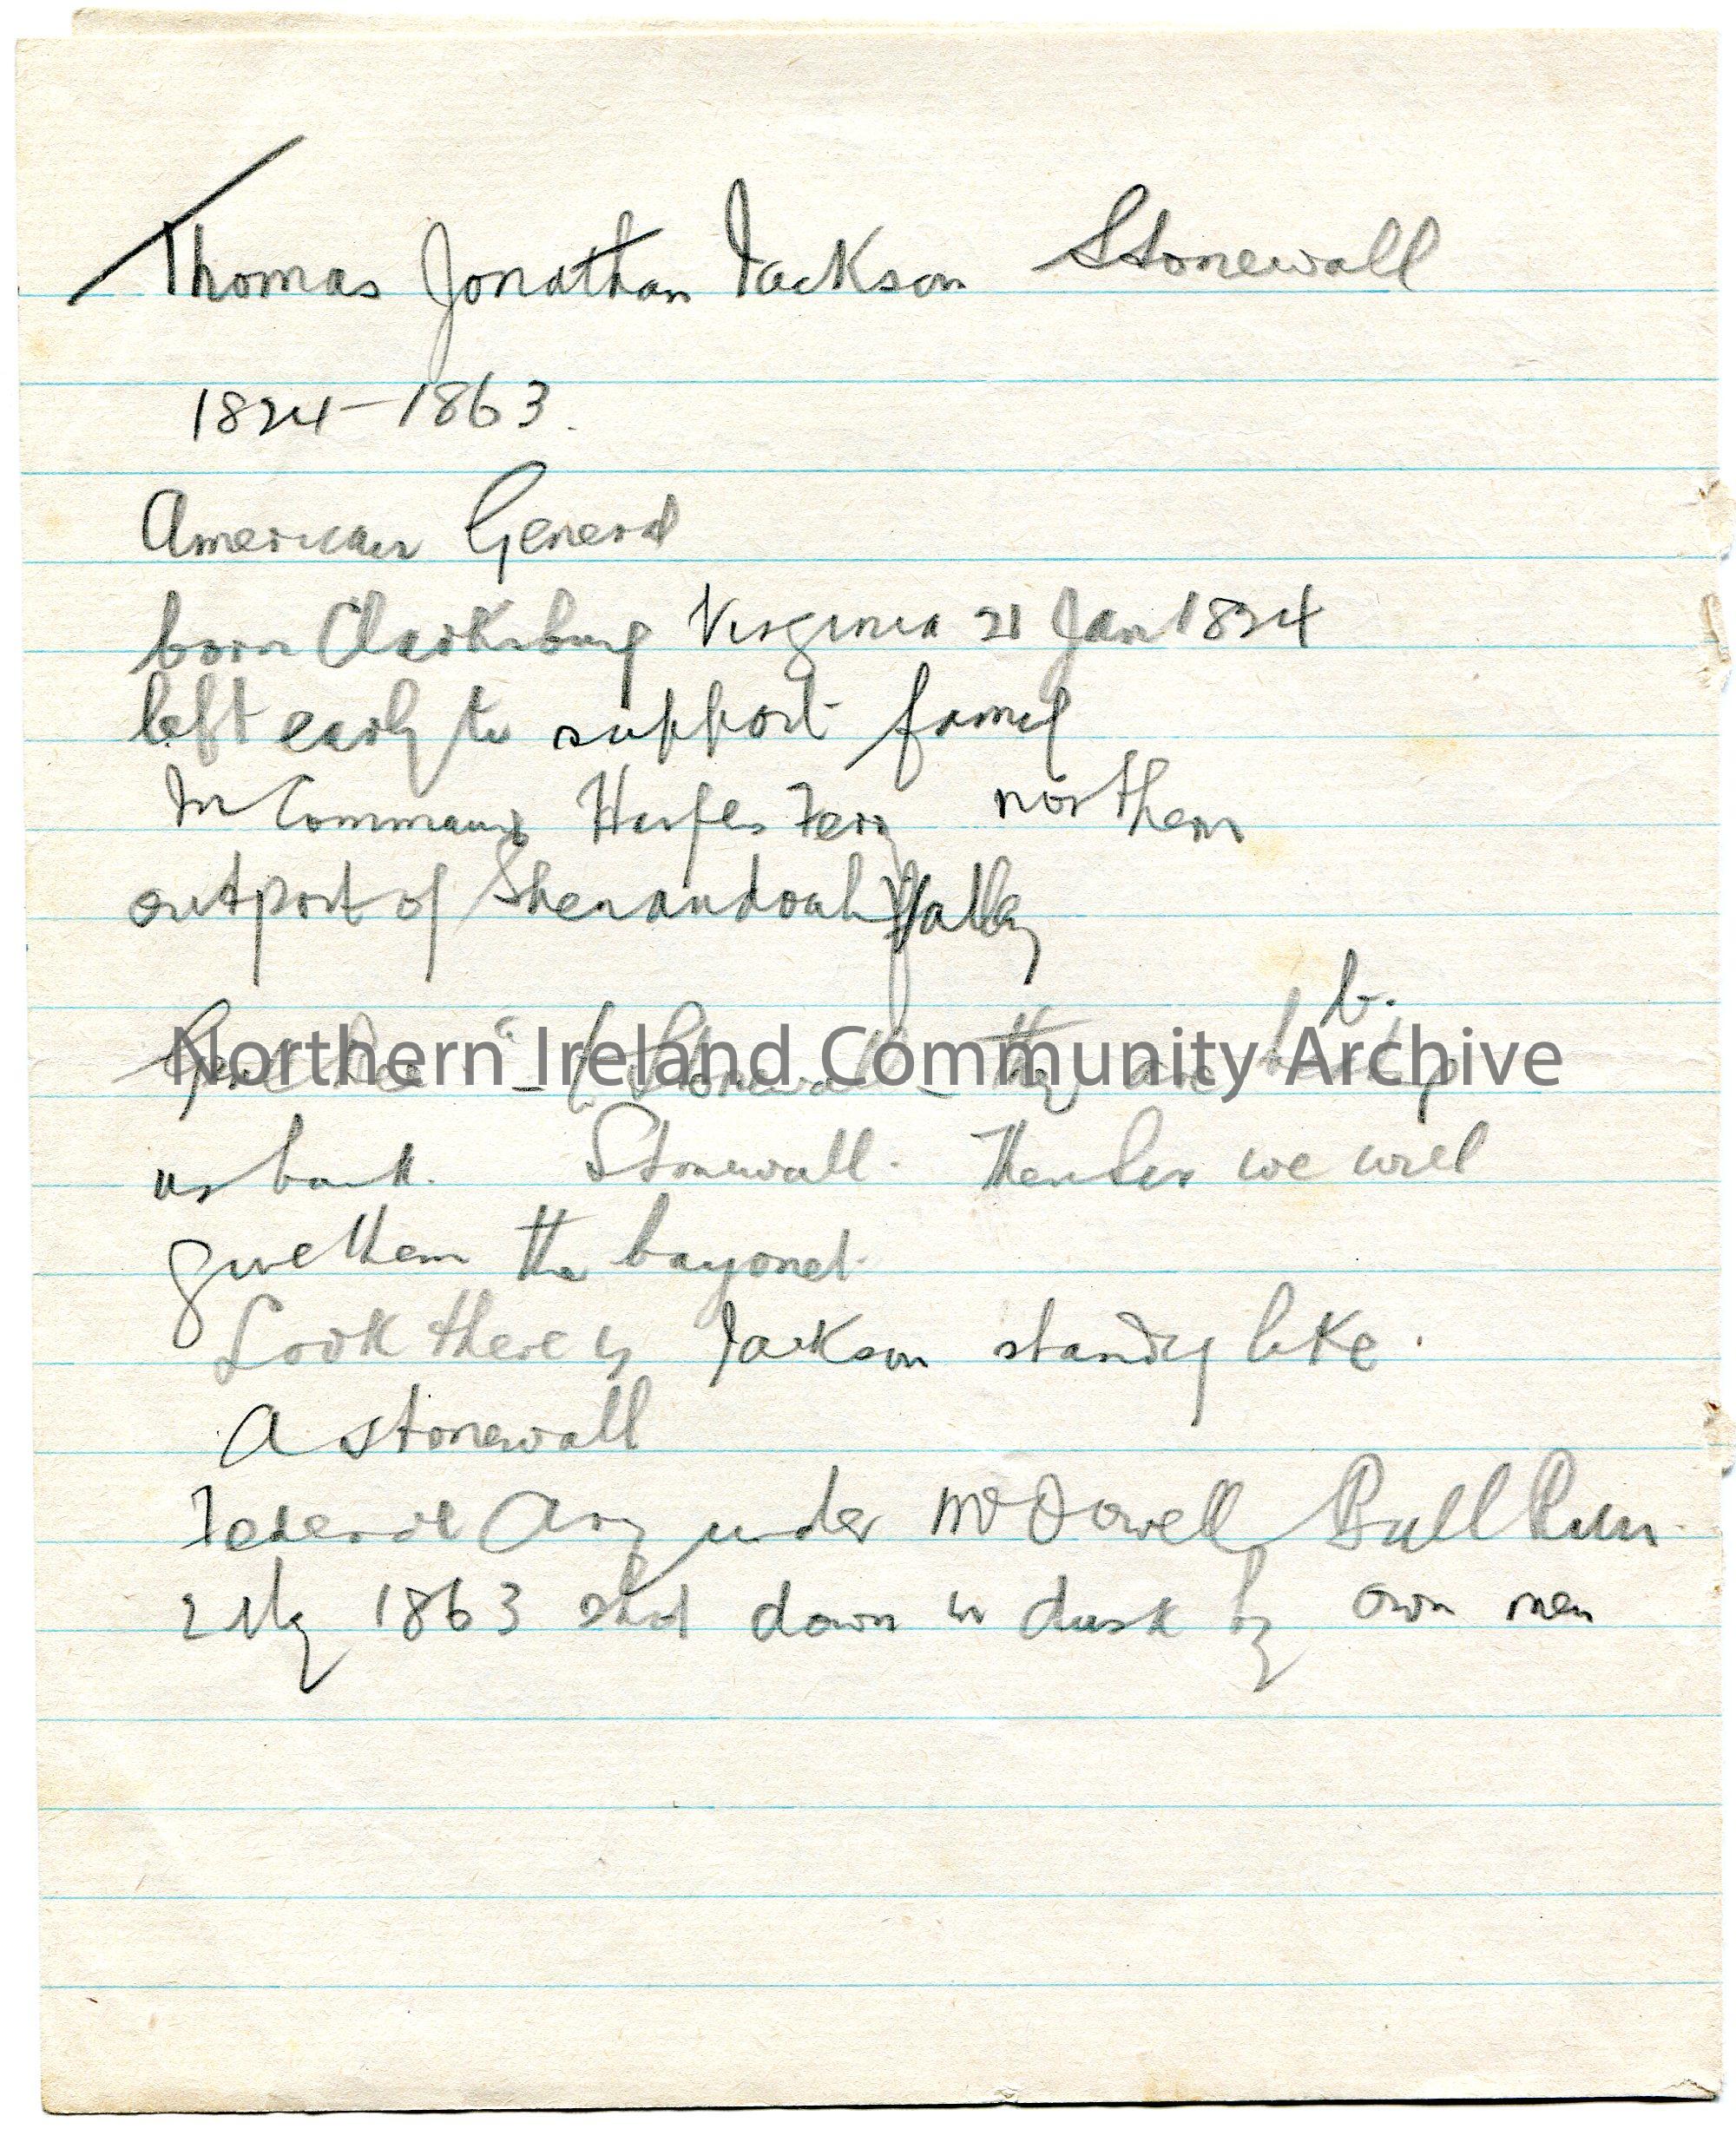 Thomas Jonathan Jackson Stonewall
1824-1863.
American General
born Clarksburg Virginia 21 Jan 1824
left early to support family
In Command Harpers Ferry northern
outpost of Shenandoah Valley
b.
Genl Bee "- Stonewall - they are beating
Northern Ireland Community Archive
us back. Stonewall. Then Sir we will
give them the bayonet.
Look there is Jackson standing like.
A stonewall
Federal Army under McDowell Bull Run.
2 My 1863 shot down in dusk by own men